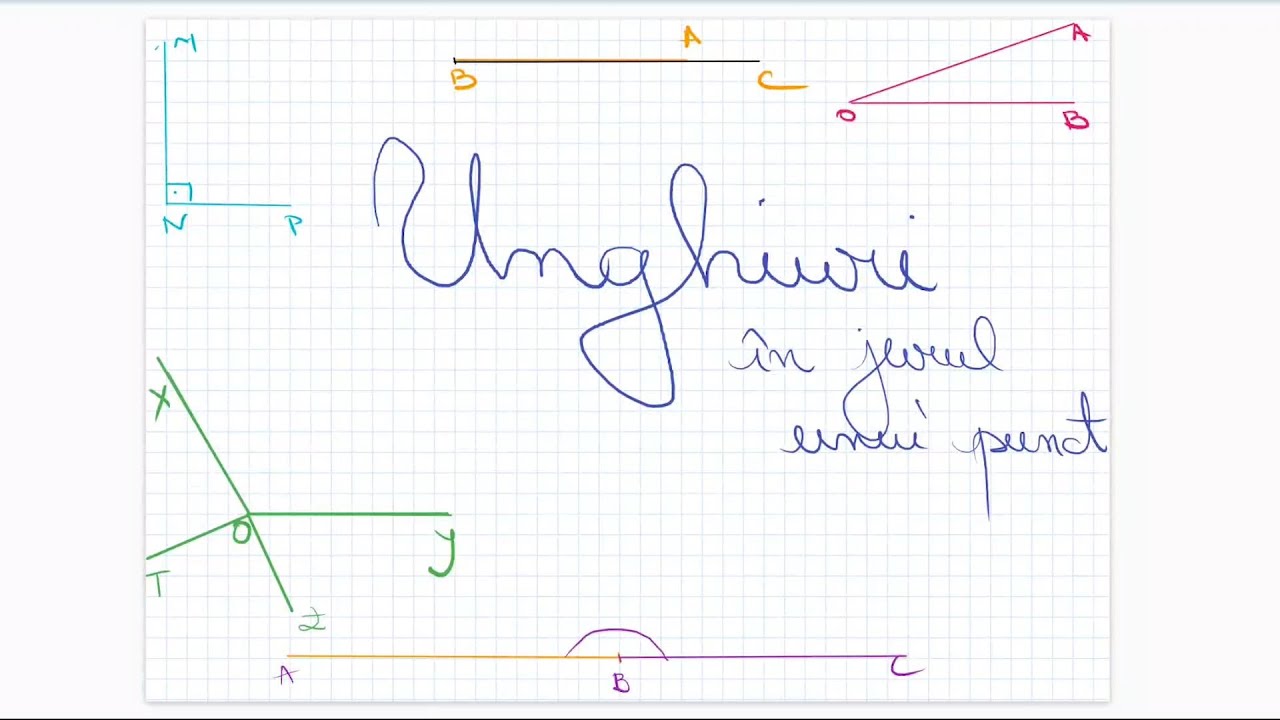 M
A
B
C
A
O
B
N
P
Unghiuri
în jurul
unui punct
X
O
T
Y
Z
A
B
C